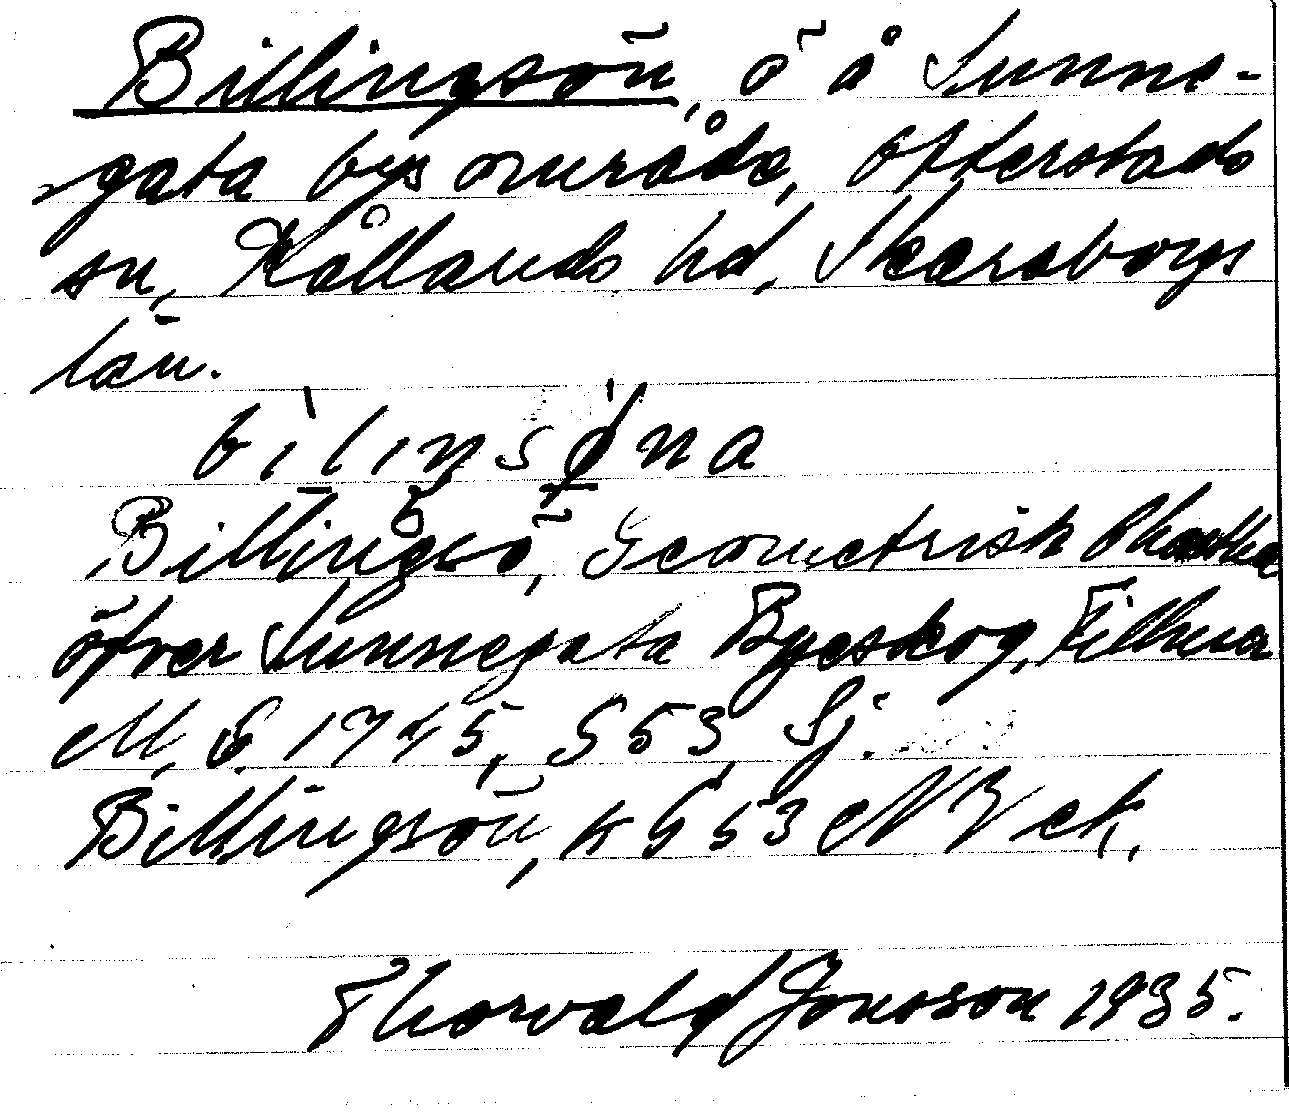 Billingsön, ö å Sunne-
gata bys område, Otterstads
sn, Kållands hd, Skaraborgs
län.
Billingsö, Geometrisk Charta
öfver Sunnegata Byeskog, Filhva
M. G. 1745, G 53, Sj.
Billingsön, k G 53 NV ek.
Thorvald Jonsson 1935.